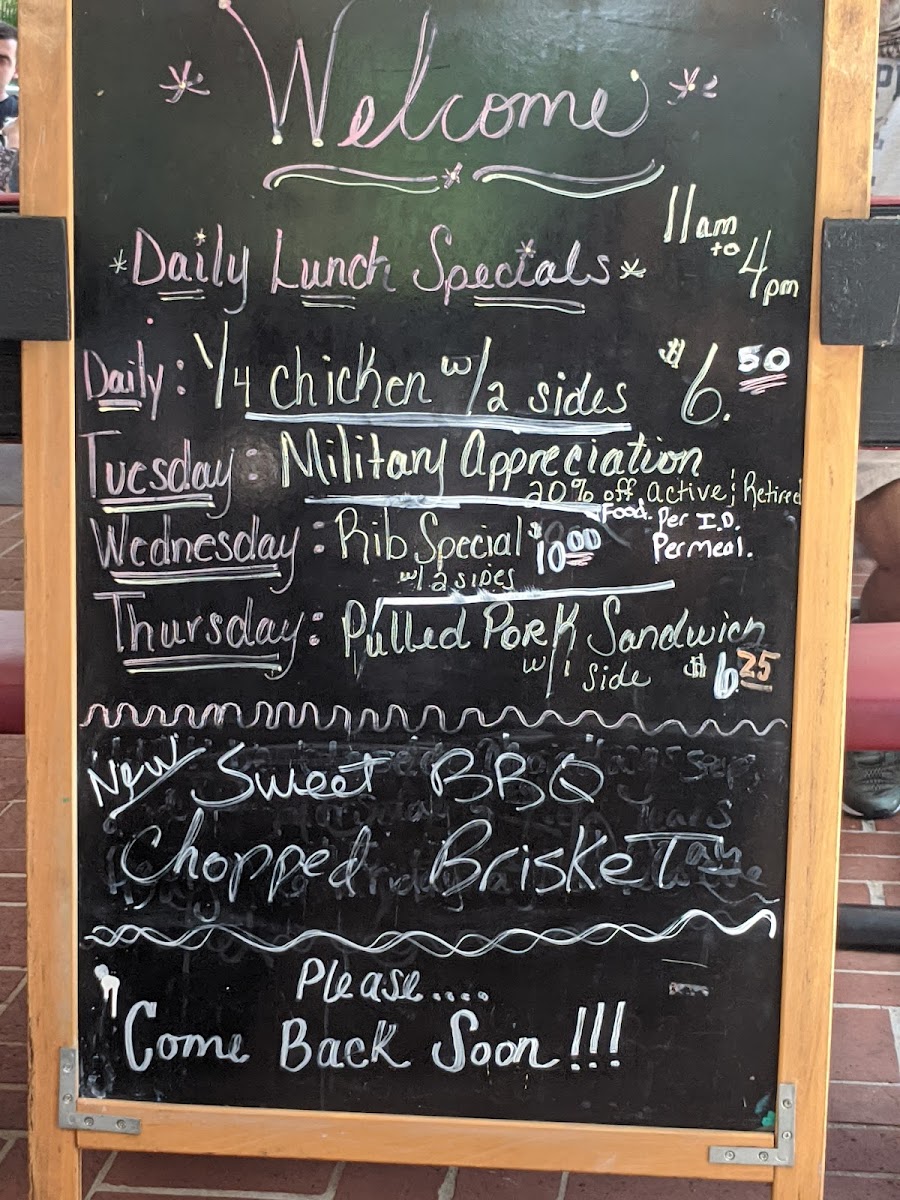 Welcome
*Daily Lunch Specials*
11am to 4pm
Daily: 1/4 chicken w/2 sides $6.50
Tuesday: Military Appreciation
20% off Active & Retired
Food. Per I.D.
Per meal.
Wednesday: Rib Special $10.00
w/2 sides
Thursday: Pulled Pork Sandwich
w/1 side $6.25
New Sweet BBQ
Chopped Brisket
Please....
Come Back Soon!!!